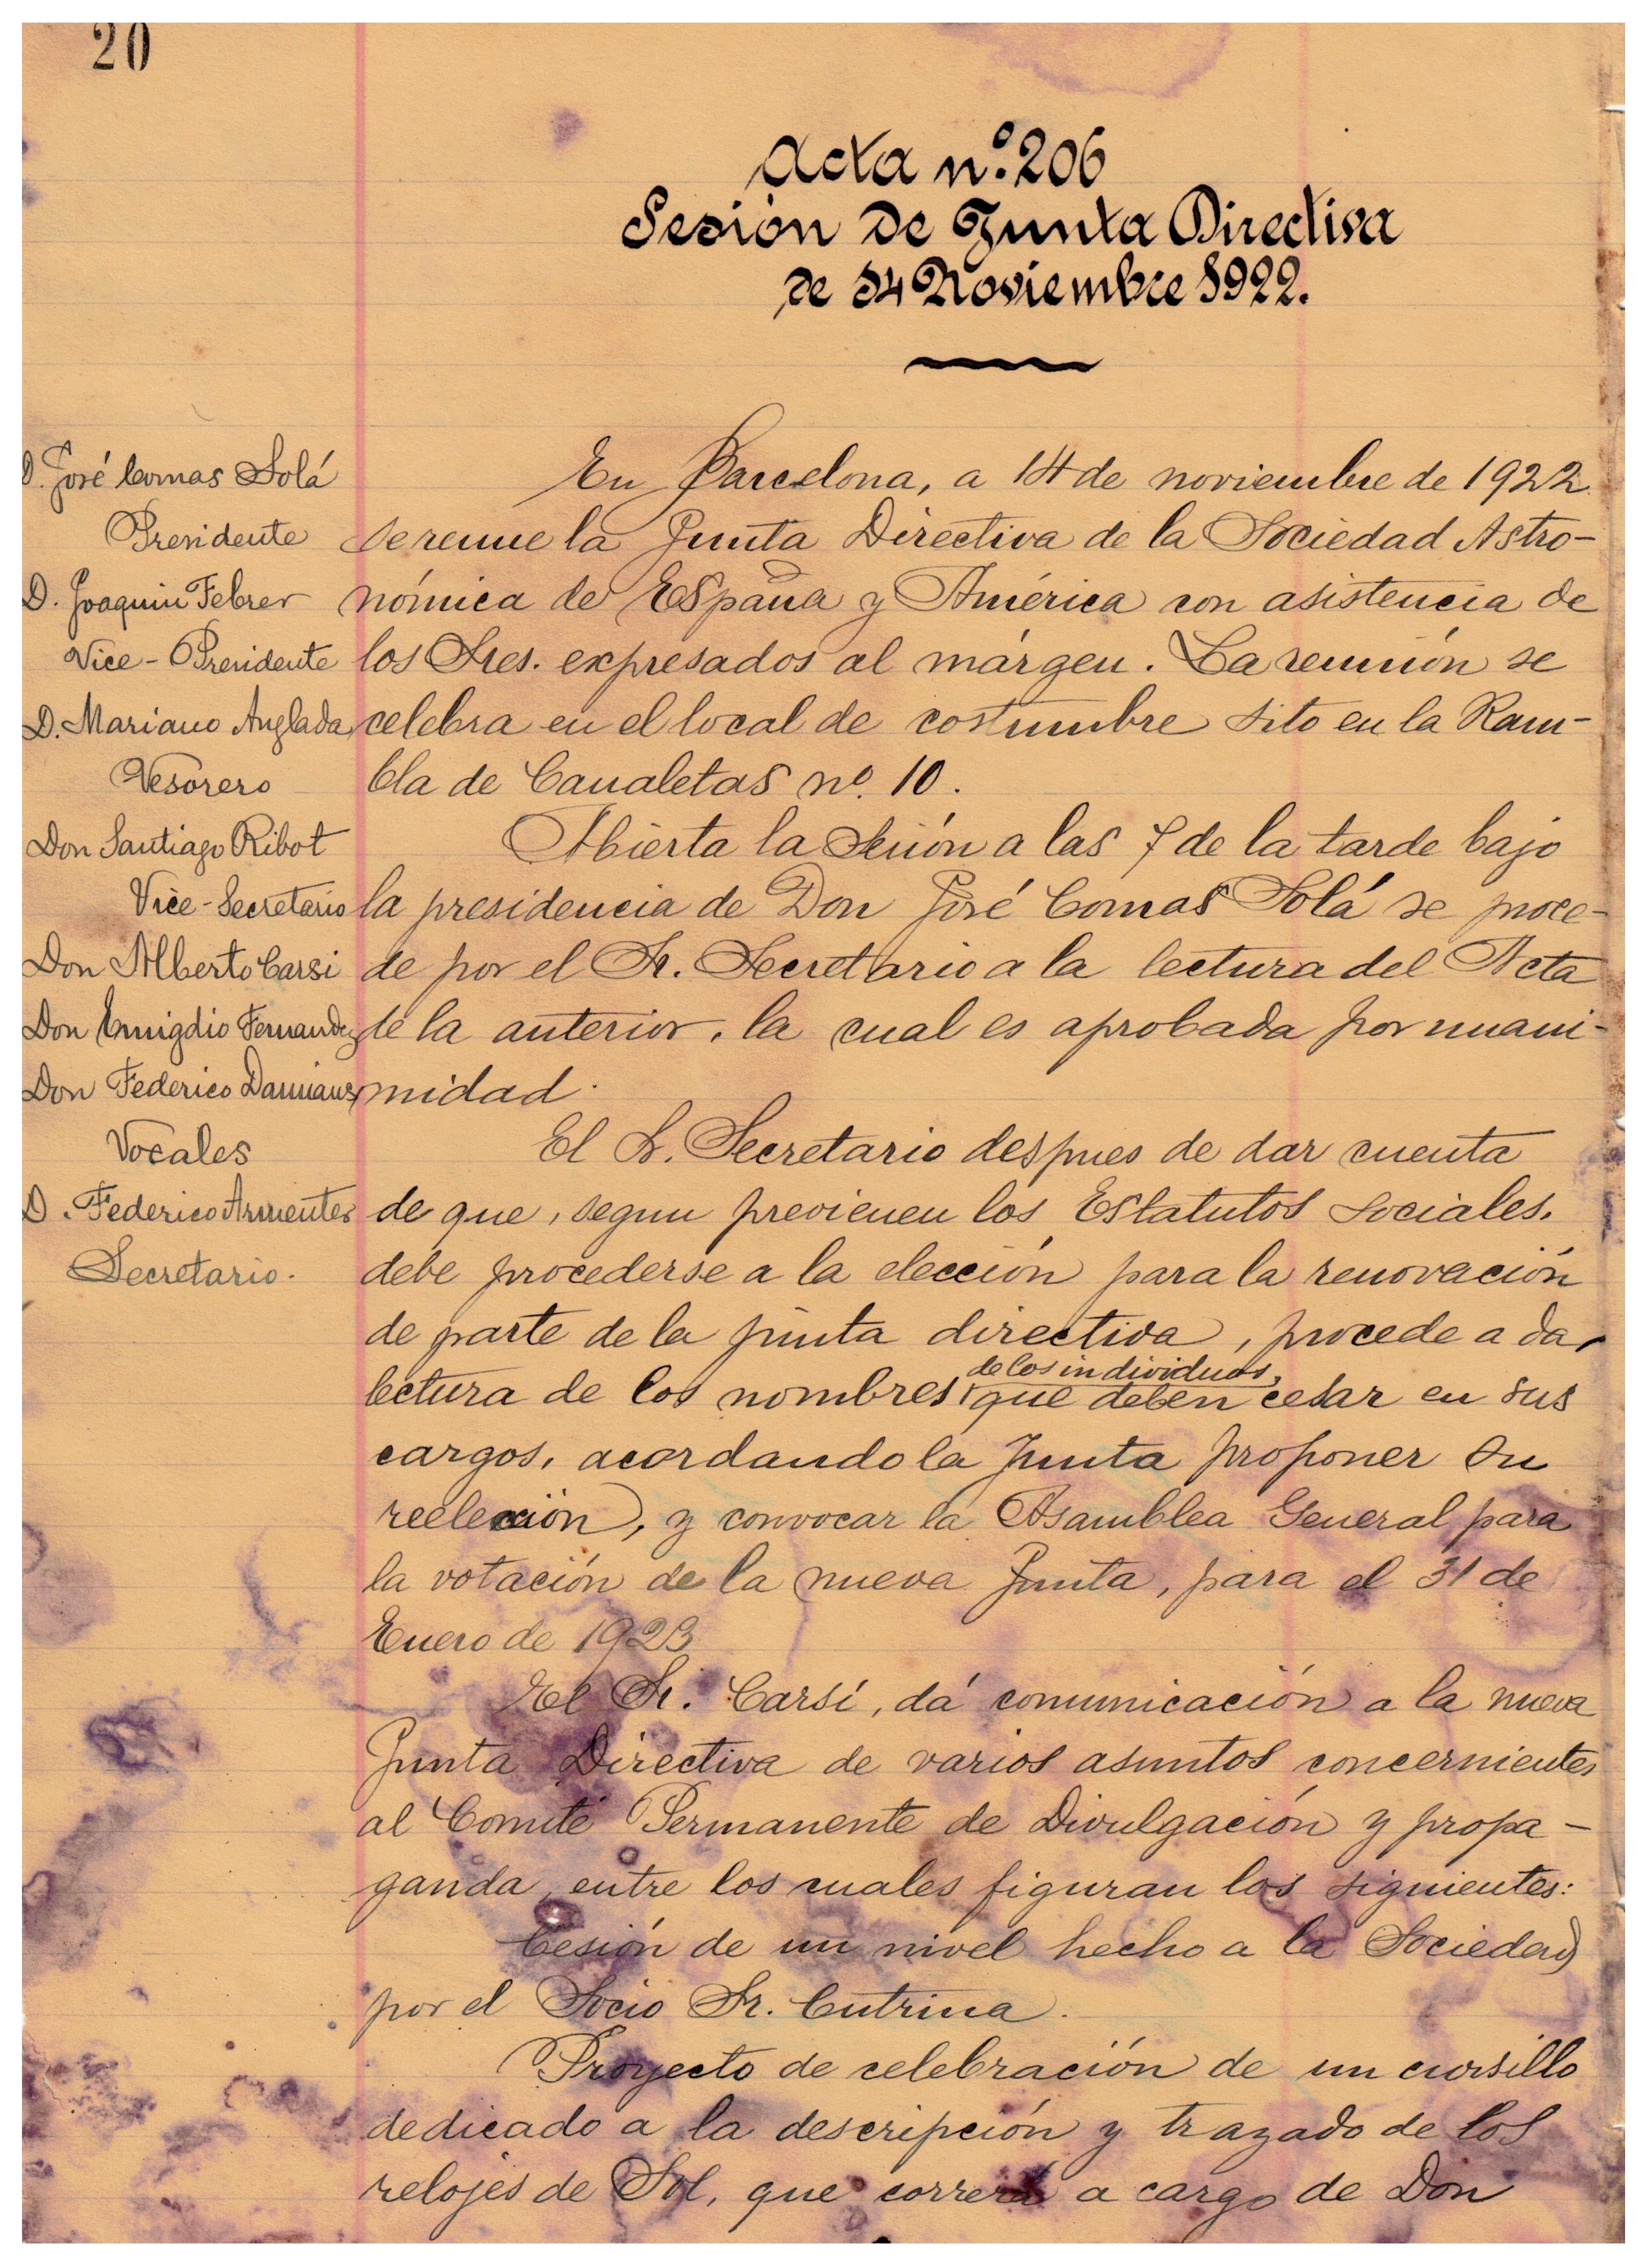 20
Acta n.º 206
Sesión de Junta Directiva
de 14 Noviembre 1922.
D. José Comas Solá
Presidente
D. Joaquin Febrer
Vice-Presidente
D. Mariano Anglada
Tesorero
Don Santiago Ribot
Vice-Secretario
Don Alberto Carsi
Don Emigdio Fernandez
Don Federico Damians
Vocales
D. Federico Armenter
Secretario.
En Barcelona, a 14 de noviembre de 1922
se reune la Junta Directiva de la Sociedad Astro-
nómica de España y América con asistencia de
los Sres. expresados al márgen. La reunión se
celebra en el local de costumbre sito en la Ram-
bla de Canaletas nº. 10.
Abierta la Sesión a las 7 de la tarde bajo
la presidencia de Don José Comas Solá se proce-
de por el Sr. Secretario a la lectura del Acta
de la anterior, la cual es aprobada por unani-
midad.
El Sr. Secretario despues de dar cuenta
de que, segun previenen los Estatutos Sociales,
debe procederse a la elección para la renovación
de parte de la junta directiva, procede a dar
lectura de los nombres de los individuos, que deben cesar en sus
cargos, acordando la Junta proponer su
reelección, y convocar la Asamblea General para
la votación de la nueva Junta, para el 31 de
Enero de 1923
El Sr. Carsí, dá comunicación a la nueva
Junta Directiva de varios asuntos concernientes
al Comité Permanente de Divulgación y propa-
ganda, entre los cuales figuran los siguientes:
Cesión de un nivel hecho a la Sociedad
por el Socio Sr. Cutrina.
Proyecto de celebración de un cursillo
dedicado a la descripción y trazado de los
relojes de Sol, que correrá a cargo de Don